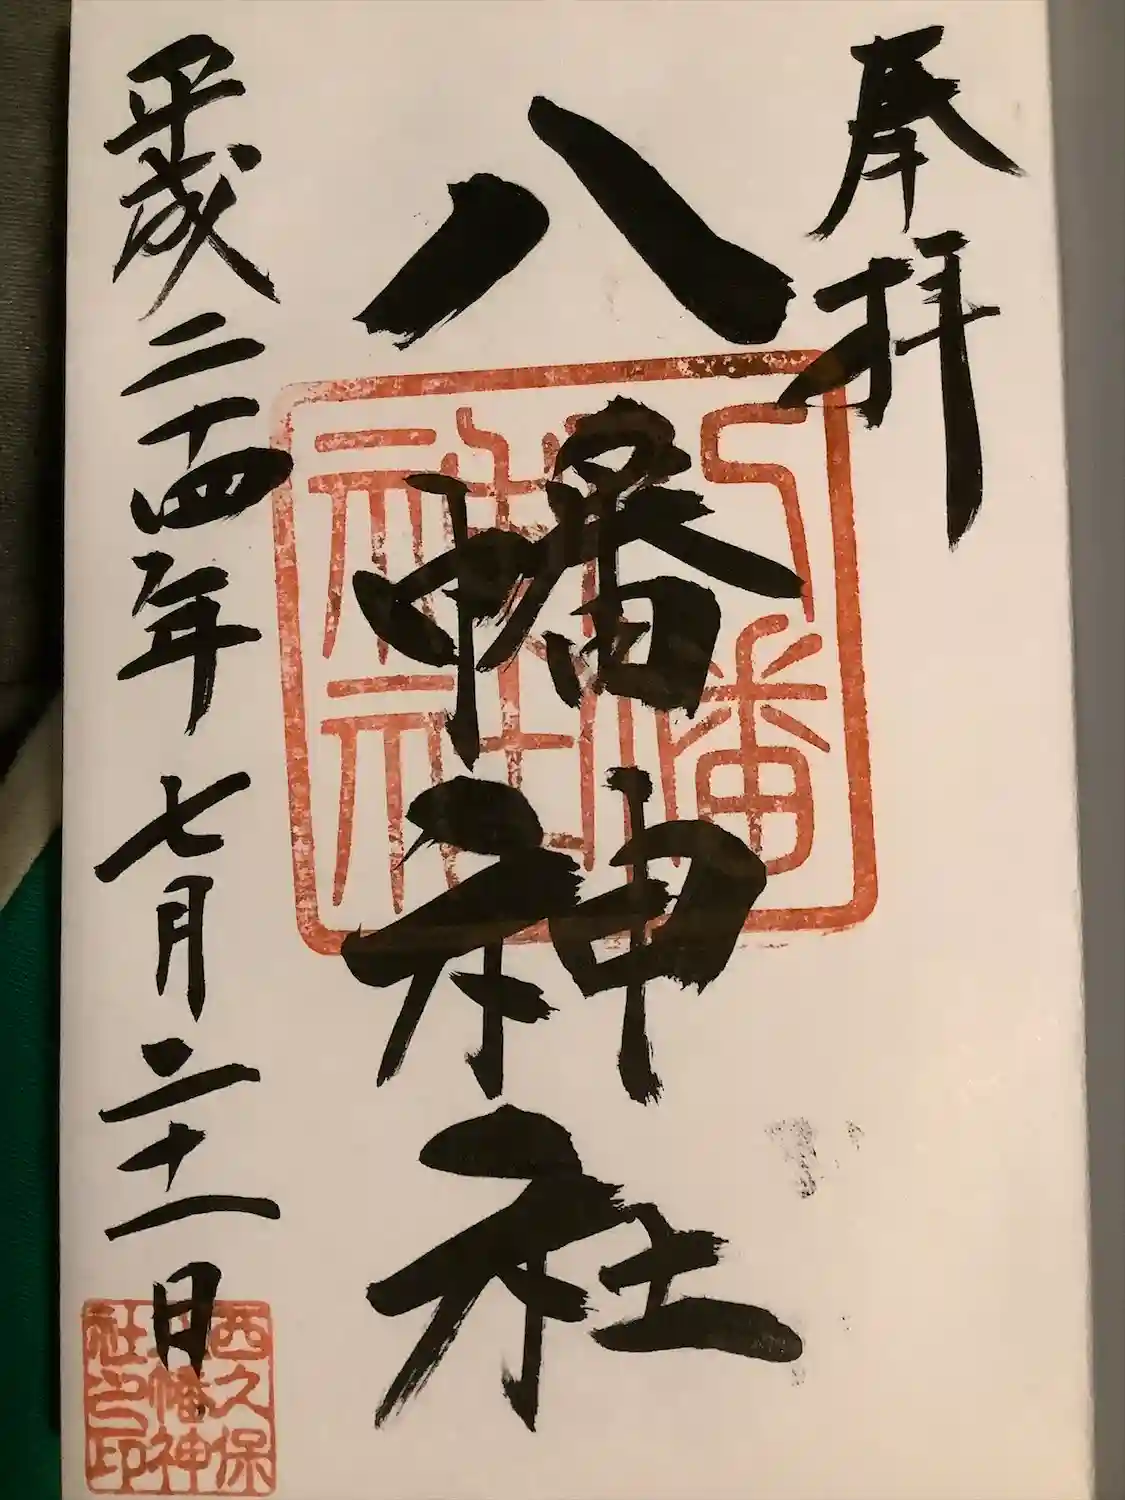 奉拝
八幡神社
平成二十四年七月二十一日
八幡
神社
西久保
八幡神
社之印